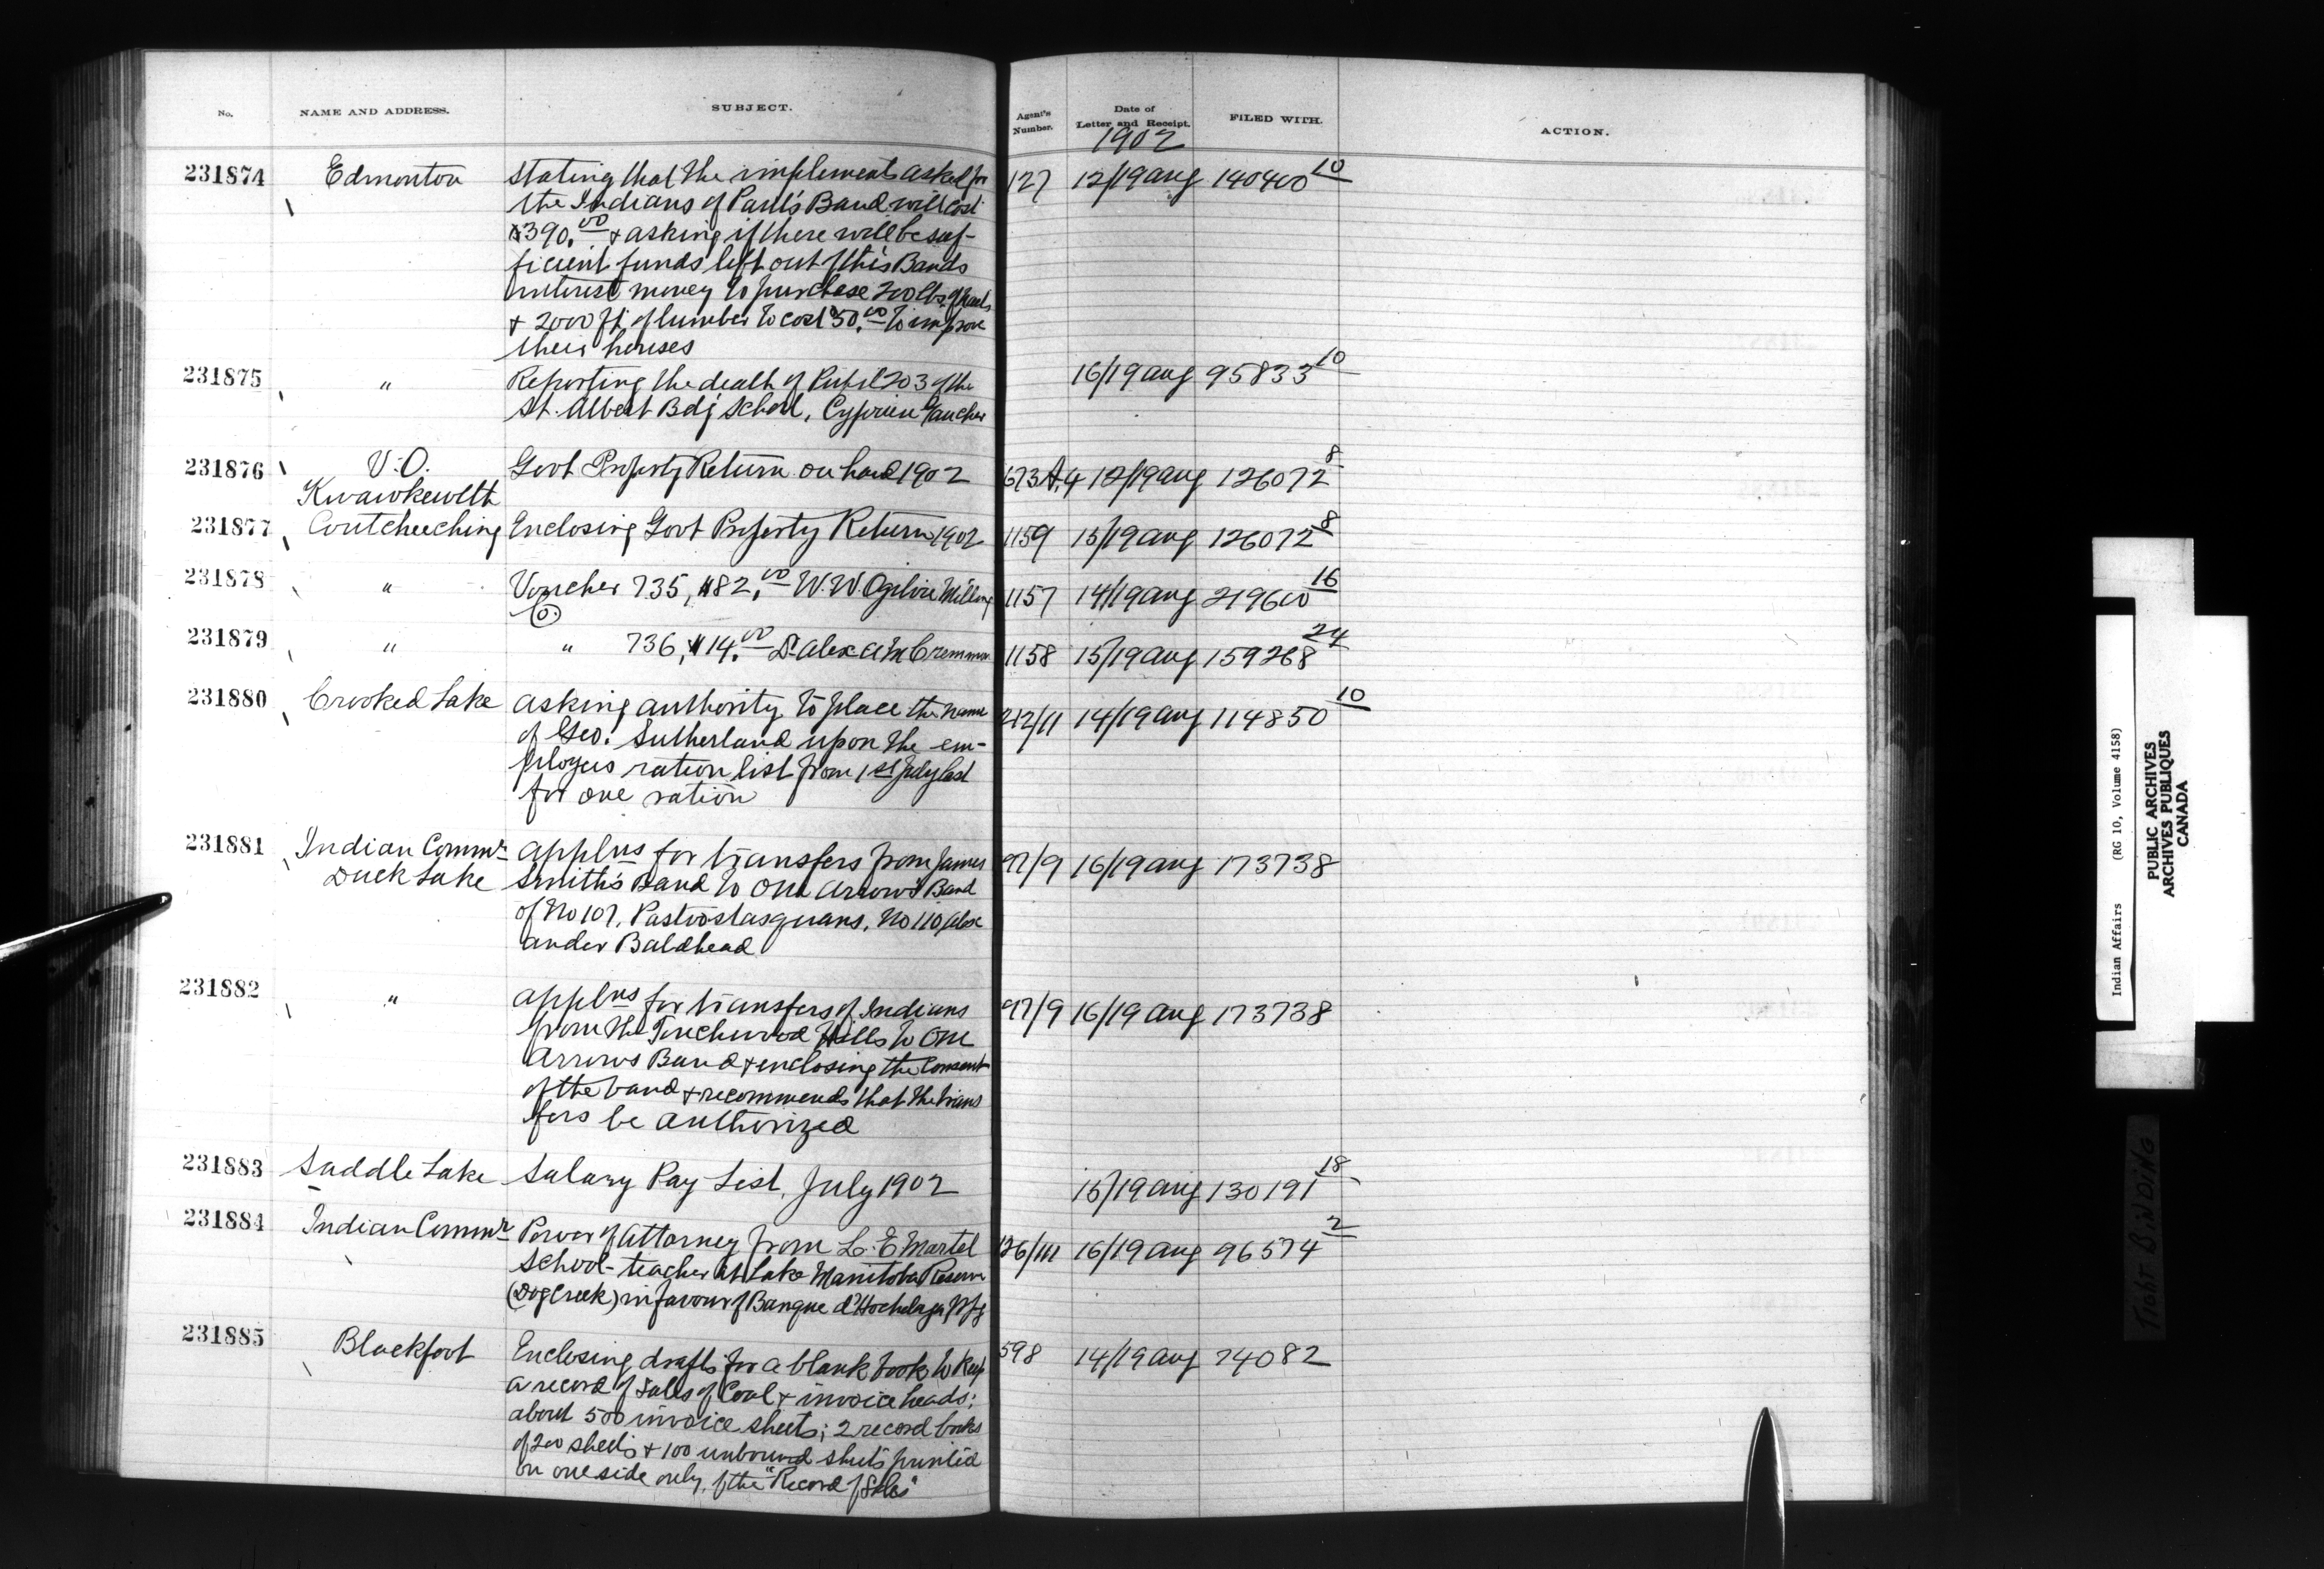 No. NAME AND ADDRESS. SUBJECT. Agent's Number. Date of Letter and Receipt. FILED WITH. ACTION.
1902
231874 Edmonton Stating that the implements asked for 127 12/19 aug 140400 10
the Indians of Paul's Band will cost
$390.00 & asking if there will be suf-
ficient funds left out of this Bands
interest money to purchase 200 lbs. of nails
& 2000 ft. of lumber to cost $50.00 to improve
their houses
231875 " Reporting the death of Pupil 203 of the 16/19 aug 95833 10
St. Albert Bdg School, Cyprien Gaucher
231876 V.O. Govt Property Return on hand 1902 673 A.4 12/19 aug 126072 8
Kwawkewlth
231877 Coutcheeching Enclosing Govt Property Return 1902 1159 15/19 aug 126072 8
231878 " Voucher 735, $82.00 W.W. Ogilvie Milling 1157 14/19 aug 219600 16
Co.
231879 " " 736, $14.00 Dr Alex 1158 15/19 aug 159268 24
231880 Crooked Lake Asking authority to place the name 212/11 14/19 aug 114850 10
of Geo. Sutherland upon the em-
ployees ration list from 1st July last
for one ration
231881 Indian Commr Applns for transfers from James 97/9 16/19 aug 173738
Duck Lake Smith's Band to One Arrow's Band
of No 107, Pastoostasquans, No 110 Alex
ander Baldhead
231882 " Applns for transfers of Indians 97/9 16/19 aug 173738
from the Touchwood Hills to One
Arrows Band & enclosing the Consent
of the band & recommends that the trans
fers be authorized
231883 Saddle Lake Salary Pay List, July 1902 15/19 aug 130191 18
231884 Indian Commr Power of Attorney from L. E Martel 126/111 16/19 aug 96574 2
School-teacher at Lake Manitoba Reserve
(Dog Creek) in favour of Banque d'Hochelaga Wpg
231885 Blackfoot Enclosing drafts for a blank book to keep 598 14/19 aug 74082
a record of Sales of Coal & invoice heads;
about 500 invoice sheets; 2 record books
of 200 sheets & 100 unbound sheets printed
on one side only, of the "Record of Sales"
Indian Affairs (RG 10, Volume 4158)
PUBLIC ARCHIVES
ARCHIVES PUBLIQUES
CANADA
TIGHT BINDING